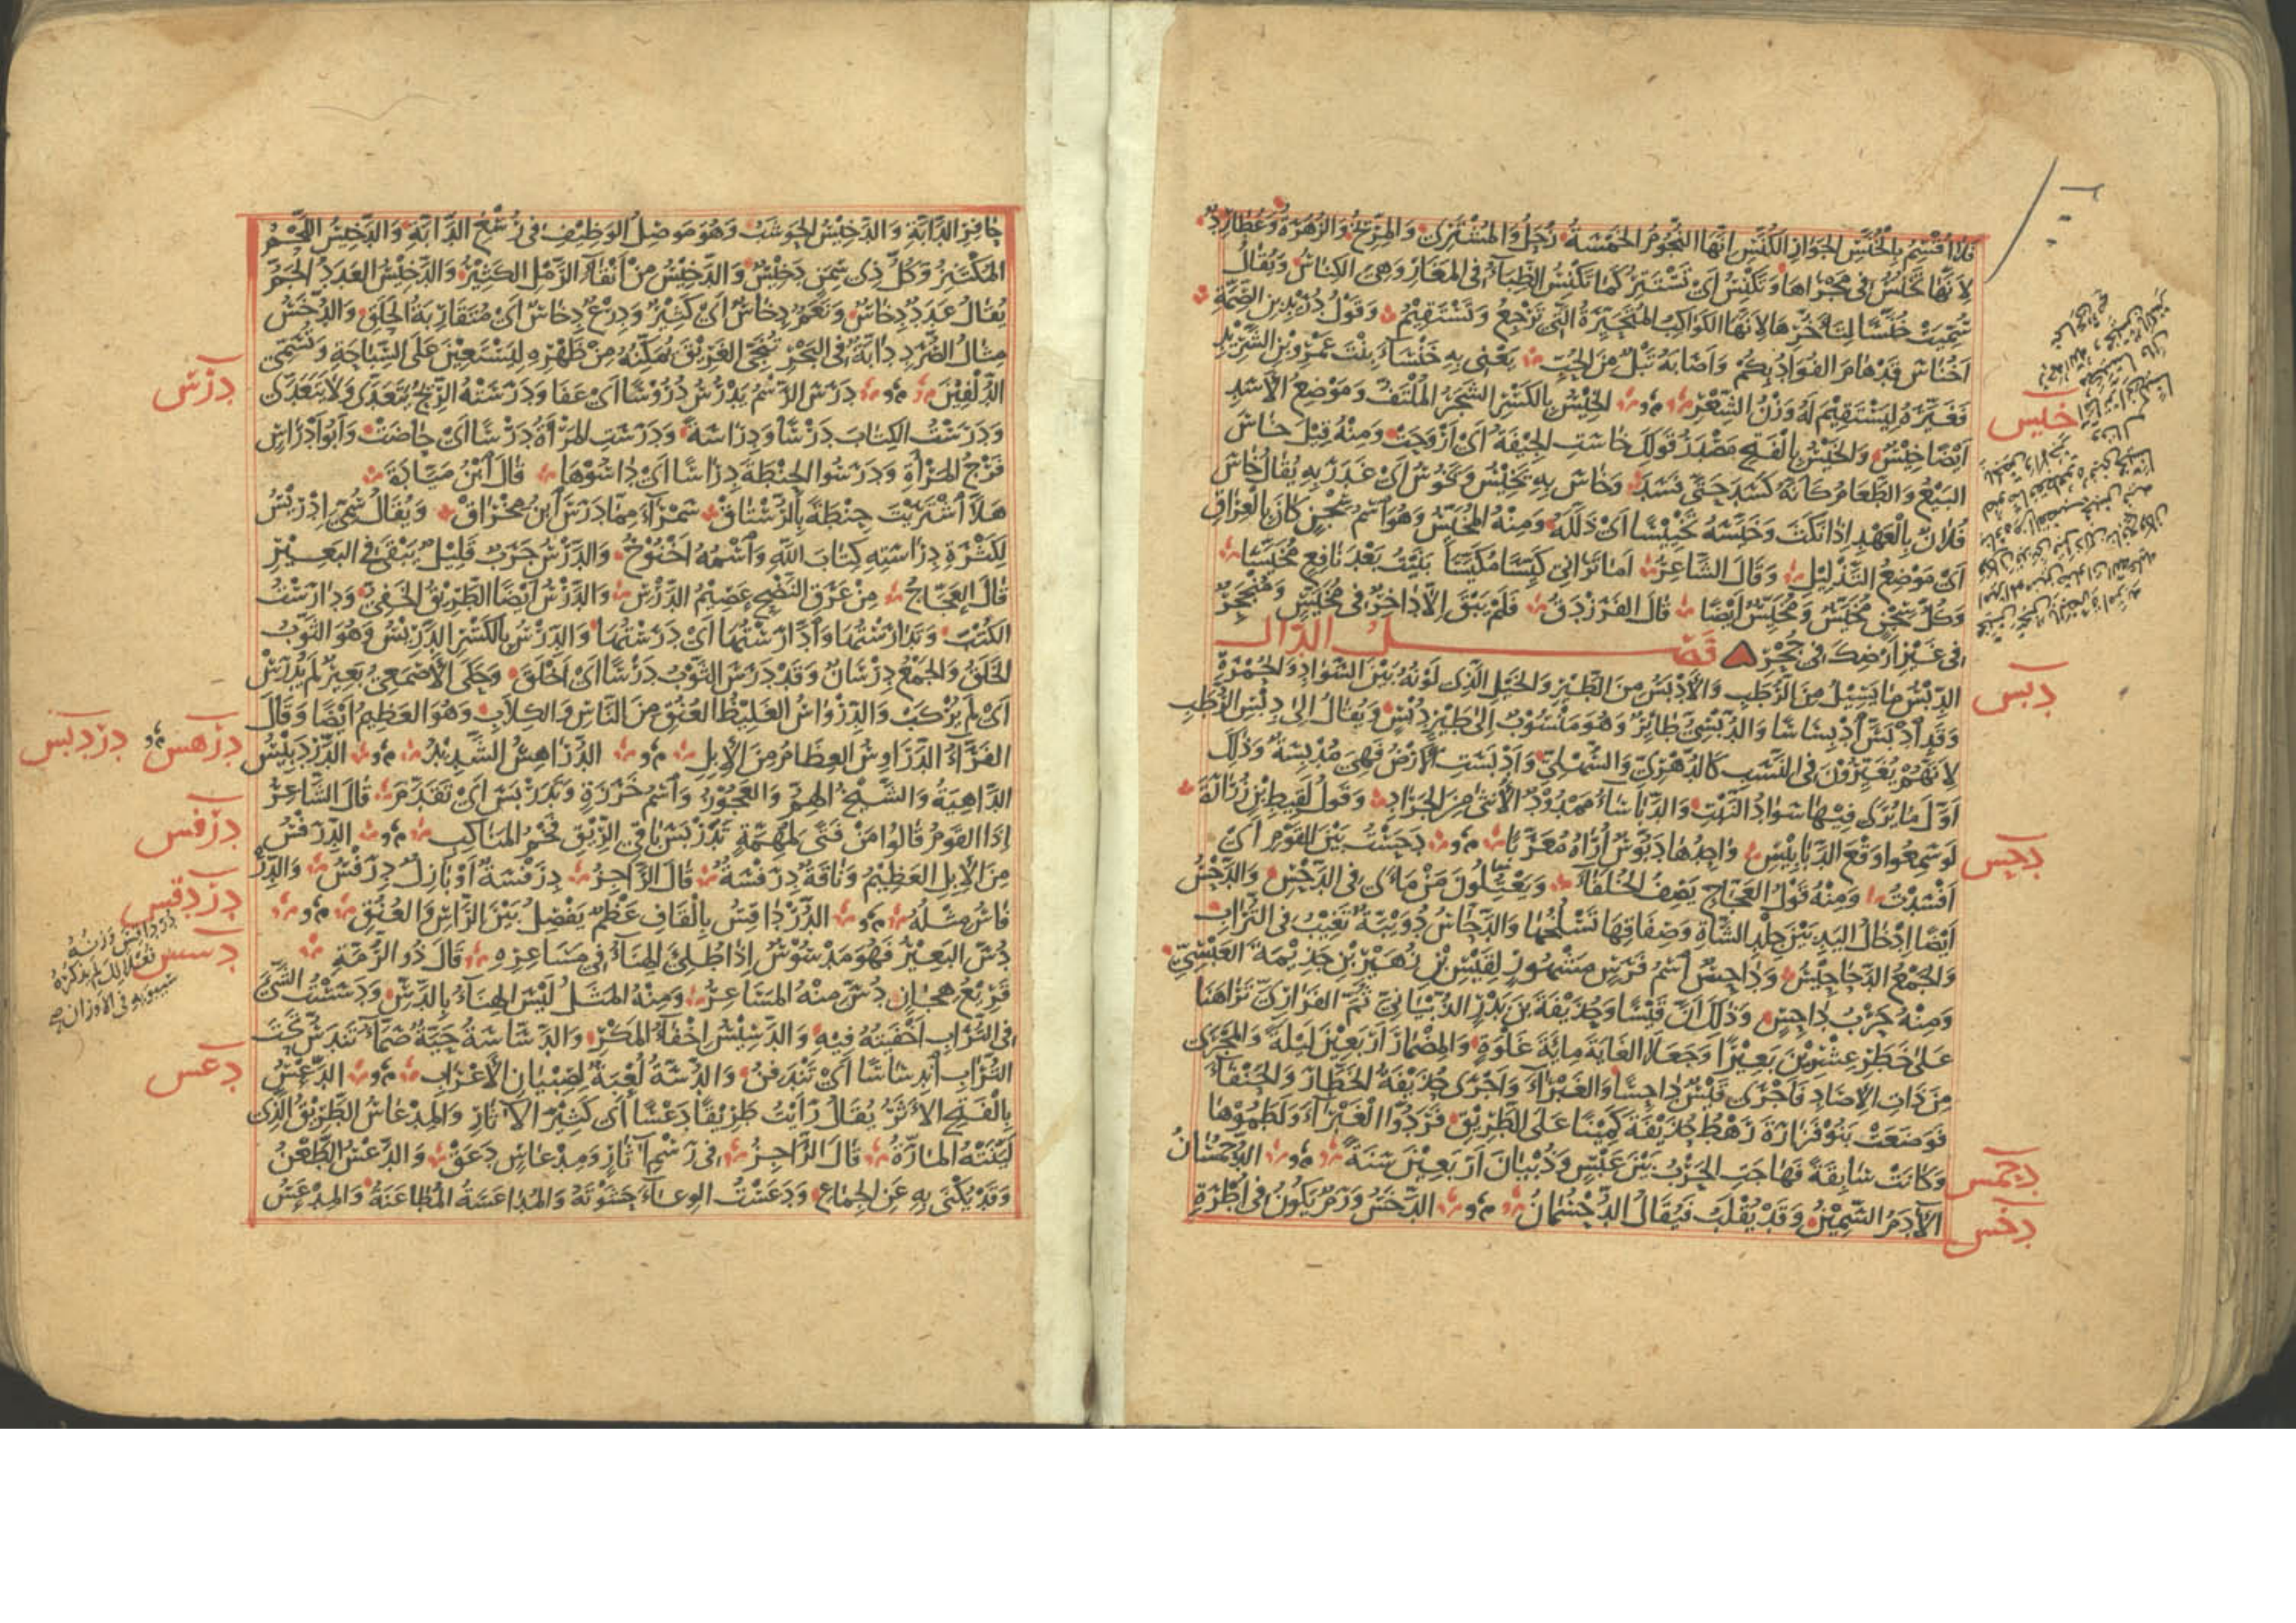 فَلَا أُقْسِمُ بِالْخُنَّسِ الجَوَارِ الكُنَّسِ إنَّهَا النُّجُومُ الخَمْسَةُ زُحَلُ وَالمُشْتَرِى وَالمِرِّيخُ وَالزُّهَرَةُ وَعُطَارِدُ
لِأَنَّهَا تَخْنِسُ فِى مَجْرَاهَا وَتَكْنِسُ أَىْ تَسْتَتِرُ كَمَا تَكْنِسُ الظِّبَاءُ فِى المَغَارِ وَهِىَ الكِنَاسُ وَيُقَالُ
سُمِّيَتْ خُنَّسًا لِتَأَخُّرِهَا لِأَنَّهَا الكَوَاكِبُ المُتَحَيِّرَةُ الَّتِى تَرْجِعُ وَتَسْتَقِيمُ وَقَوْلُ دُرَيْدِ بْنِ الصِّمَّةِ
أَخُنَاسُ قَدْ هَامَ الفُؤَادُ بِكُمْ وَأَصَابَهُ تَبْلٌ مِنَ الحُبِّ يَعْنِى بِهِ خَنْسَاءَ بِنْتَ عَمْرِو بْنِ الشَّرِيدِ
فَغَيَّرَهُ لِيَسْتَقِيمَ لَهُ وَزْنُ الشِّعْرِ م و الخِيسُ بِالكَسْرِ الشَّجَرُ المُلْتَفُّ وَمَوْضِعُ الأَسَدِ
أَيْضًا خِيسٌ وَالخَيْسُ بِالْفَتْحِ مَصْدَرُ قَوْلِكَ خَاسَتِ الجِيفَةُ أَىْ أَرْوَحَتْ وَمِنْهُ قِيلَ خَاسَ
البَيْعُ وَالطَّعَامُ كَأَنَّهُ كَسَدَ حَتَّى فَسَدَ وَخَاسَ بِهِ يَخِيسُ وَيَخُوسُ أَىْ غَدَرَ بِهِ يُقَالُ خَاسَ
فُلَانٌ بِالْعَهْدِ إِذَا نَكَثَ وَخَيَّسَهُ تَخْيِيسًا أَىْ ذَلَّلَهُ وَمِنْهُ المُخَيَّسُ وَهُوَ اسْمُ سِجْنٍ كَانَ بِالعِرَاقِ
أَىْ مَوْضِعُ التَّذْلِيلِ وَقَالَ الشَّاعِرُ أَمَا تَرَانِى كَيِّسًا مُكَيَّسًا بَنَيْتُ بَعْدَ نَافِعٍ مُخَيَّسًا
وَكُلُّ سِجْنٍ مُخَيَّسٌ وَمُخَيِّسٌ أَيْضًا قَالَ الفَرَزْدَقُ فَلَمْ يَبْقَ إِلَّا دَاخِرٌ فِى مُخَيَّسٍ وَمُنْجَحِرٌ
فِى غَيْرِ أَرْضِكَ فِى جُحْرِ فصل الدال
الدِّبْسُ مَا يَسِيلُ مِنَ الرُّطَبِ وَالأَدْبَسُ مِنَ الطَّيْرِ وَالخَيْلِ الَّذِى لَوْنُهُ بَيْنَ السَّوَادِ وَالحُمْرَةِ
وَقَدِ ادْبَسَّ ادْبِسَاسًا وَالدُّبْسِىُّ طَائِرٌ وَهُوَ مَنْسُوبٌ إِلَى طَيْرٍ دُبْسٍ وَيُقَالُ إِلَى دِبْسِ الرُّطَبِ
لِأَنَّهُمْ يُغَيِّرُونَ فِى النَّسَبِ كَالدُّهْرِىِّ وَالسُّهْلِىِّ وَأَدْبَسَتِ الأَرْضُ فَهِىَ مُدْبِسَةٌ وَذَلِكَ
أَوَّلَ مَا يُرَى فِيهَا سَوَادُ النَّبْتِ وَالدَّبَاسَاءُ مَمْدُودٌ الأُنْثَى مِنَ الجَرَادِ وَقَوْلُ لَقِيطِ بْنِ زُرَارَةَ
لَوْ سَمِعُوا وَقْعَ الدَّبَابِيسِ وَاحِدُهَا دَبُّوسٌ أُرَاهُ مُعَرَّبًا م و دَحَسْتُ بَيْنَ القَوْمِ أَىْ
أَفْسَدْتُ وَمِنْهُ قَوْلُ العَجَّاجِ يَصِفُ الخُلَفَاءَ وَيَعْتِلُونَ مَنْ مَأَى فِى الدَّحْسِ وَالدَّحْسُ
أَيْضًا إِدْخَالُ اليَدِ بَيْنَ جِلْدِ الشَّاةِ وَصِفَاقِهَا تَسْلُخُهَا وَالدَّحَّاسُ دُوَيْبَّةٌ تَغِيبُ فِى التُّرَابِ
وَالجَمْعُ الدَّحَاحِيسُ وَدَاحِسٌ اسْمُ فَرَسٍ مَشْهُورٍ لِقَيْسِ بْنِ زُهَيْرِ بْنِ جَذِيمَةَ العَبْسِىِّ
وَمِنْهُ حَرْبُ دَاحِسٍ وَذَلِكَ أَنَّ قَيْسًا وَحُذَيْفَةَ بْنَ بَدْرٍ الذُّبْيَانِىَّ ثُمَّ الفَزَارِىَّ تَرَاهَنَا
عَلَى خَطَرِ عِشْرِينَ بَعِيرًا وَجَعَلَا الغَايَةَ مِائَةَ غَلْوَةٍ وَالمِضْمَارَ أَرْبَعِينَ لَيْلَةً وَالمَجْرَى
مِنْ ذَاتِ الإِصَادِ فَأَجْرَى قَيْسٌ دَاحِسًا وَالغَبْرَاءَ وَأَجْرَى حُذَيْفَةُ الخَطَّارَ وَالحَنْفَاءَ
فَوَضَعَتْ بَنُو فَزَارَةَ رَهْطُ حُذَيْفَةَ كَمِينًا عَلَى الطَّرِيقِ فَرَدُّوا الغَبْرَاءَ وَلَطَمُوهَا
وَكَانَتْ سَابِقَةً فَهَاجَتِ الحَرْبُ بَيْنَ عَبْسٍ وَذُبْيَانَ أَرْبَعِينَ سَنَةً م و الدُّحْمُسَانُ
الآدَمُ السَّمِينُ وَقَدْ يُقْلَبُ فَيُقَالُ الدُّحْسُمَانُ م و الدَّخَسُ وَرَمٌ يَكُونُ فِى أُطْرَةِ
خيس
دبس
دحس
دحمس
دخس
حَافِرِ الدَّابَّةِ وَالدَّخِيسُ الحَوْشَبُ وَهُوَ مَوْصِلُ الوَظِيفِ فِى رُسْغِ الدَّابَّةِ وَالدَّخِيسُ اللَّحْمُ
المُكْتَنِزُ وَكُلُّ ذِى سِمَنٍ دَخِيسٌ وَالدَّخِيسُ مِنْ أَنْقَاءِ الرَّمْلِ الكَثِيرُ وَالدَّخِيسُ العَدَدُ الجَمُّ
يُقَالُ عَدَدٌ دِخَاسٌ وَنَعَمٌ دِخَاسٌ أَىْ كَثِيرٌ وَدِرْعٌ دِخَاسٌ أَىْ مُتَقَارِبَةُ الحَلَقِ وَالدُّخَسُ
مِثَالُ الصُّرَدِ دَابَّةٌ فِى البَحْرِ تُنَجِّى الغَرِيقَ تُمَكِّنُهُ مِنْ ظَهْرِهِ لِيَسْتَعِينَ عَلَى السِّبَاحَةِ وَتُسَمَّى
الدُّلْفِينَ م و دَرَسَ الرَّسْمُ يَدْرُسُ دُرُوسًا أَىْ عَفَا وَدَرَسَتْهُ الرِّيحُ يَتَعَدَّى وَلَا يَتَعَدَّى
وَدَرَسْتُ الكِتَابَ دَرْسًا وَدِرَاسَةً وَدَرَسَتِ المَرْأَةُ دَرْسًا أَىْ حَاضَتْ وَأَبُو أَدْرَاسٍ
فَرْجُ المَرْأَةِ وَدَرَسُوا الحِنْطَةَ دِرَاسًا أَىْ دَاسُوهَا قَالَ ابْنُ مَيَّادَةَ
هَلَّا اشْتَرَيْتَ حِنْطَةً بِالرُّسْتَاقْ سَمْرَاءَ مِمَّا دَرَسَ ابْنُ مِخْرَاقْ وَيُقَالُ سُمِّىَ إِدْرِيسُ
لِكَثْرَةِ دِرَاسَتِهِ كِتَابَ اللهِ وَاسْمُهُ أَخْنُوخُ وَالدَّرْسُ جَرَبٌ قَلِيلٌ يَبْقَى فِى البَعِيرِ
قَالَ العَجَّاجُ مِنْ عَرَقِ النَّضْحِ عَصِيمُ الدَّرْسِ وَالدَّرْسُ أَيْضًا الطَّرِيقُ الخَفِىُّ وَدَارَسْتُ
الكُتُبَ وَتَدَارَسْتُهَا وَادَّارَسْتُهَا أَىْ دَرَسْتُهَا وَالدِّرْسُ بِالكَسْرِ الدَّرِيسُ وَهُوَ الثَّوْبُ
الخَلَقُ وَالجَمْعُ دِرْسَانٌ وَقَدْ دَرَسَ الثَّوْبُ دَرْسًا أَىْ أَخْلَقَ وَحَكَى الأَصْمَعِىُّ بَعِيرٌ لَمْ يُدَرَّسْ
أَىْ لَمْ يُرْكَبْ وَالدِّرْوَاسُ الغَلِيظُ العُنُقِ مِنَ النَّاسِ وَالكِلَابِ وَهُوَ العَظِيمُ أَيْضًا وَقَالَ
الفَرَّاءُ الدَّرَاوِسُ العِظَامُ مِنَ الإِبِلِ م و الدُّرَاهِسُ الشَّدِيدُ م و الدَّرْدَبِيسُ
الدَّاهِيَةُ وَالشَّيْخُ الهِمُّ وَالعَجُوزُ وَاسْمُ خَرَزَةٍ وَتَدَرْبَسَ أَىْ تَقَدَّمَ قَالَ الشَّاعِرُ
إِذَا القَوْمُ قَالُوا مَنْ فَتًى لِمُهِمَّةٍ تَدَرْبَسَ بَاقِى الرِّيقِ فَخْمُ المَنَاكِبِ م و الدِّرَفْسُ
مِنَ الإِبِلِ العَظِيمُ وَنَاقَةٌ دِرَفْسَةٌ قَالَ الرَّاجِزُ دِرَفْسَةٌ أَوْ بَازِلٌ دِرَفْسُ وَالدِّرْ
فَاسُ مِثْلُهُ م و الدُّرْدَاقِسُ بِالْقَافِ عَظْمٌ يَفْصِلُ بَيْنَ الرَّأْسِ وَالعُنُقِ م و
دُسَّ البَعِيرُ فَهُوَ مَدْسُوسٌ إِذَا طُلِىَ الهِنَاءُ فِى مَسَاعِرِهِ قَالَ ذُو الرُّمَّةِ
قَرِيعُ هِجَانٍ دُسَّ مِنْهُ المَسَاعِرُ وَمِنْهُ المَثَلُ لَيْسَ الهِنَاءُ بِالدَّسِّ وَدَسَسْتُ الشَّىْءَ
فِى التُّرَابِ أَخْفَيْتُهُ فِيهِ وَالدَّسِيسُ إِخْفَاءُ المَكْرِ وَالدَّسَّاسَةُ حَيَّةٌ صَمَّاءُ تَنْدَسُّ تَحْتَ
التُّرَابِ انْدِسَاسًا أَىْ تَنْدَفِنُ وَالدُّسَّةُ لُعْبَةٌ لِصِبْيَانِ الأَعْرَابِ م و الدَّعْسُ
بِالْفَتْحِ الأَثَرُ يُقَالُ رَأَيْتُ طَرِيقًا دَعْسًا أَىْ كَثِيرَ الآثَارِ وَالمِدْعَاسُ الطَّرِيقُ الَّذِى
لَيَّنَتْهُ المَارَّةُ قَالَ الرَّاجِزُ فِى رَسْمِ آثَارٍ وَمِدْعَاسٍ دَعَقْ وَالدَّعْسُ الطَّعْنُ
وَقَدْ يُكْنَى بِهِ عَنِ الجِمَاعِ وَدَعَسْتُ الوِعَاءَ حَشَوْتُهُ وَالمُدَاعَسَةُ المُطَاعَنَةُ وَالمِدْعَسُ
درس
درهس و دردبس
درفس
دردقس
دردَاقس وزنه
فعلالل لم يذكره
سيبويه فى الأوزان
دسس
دعس